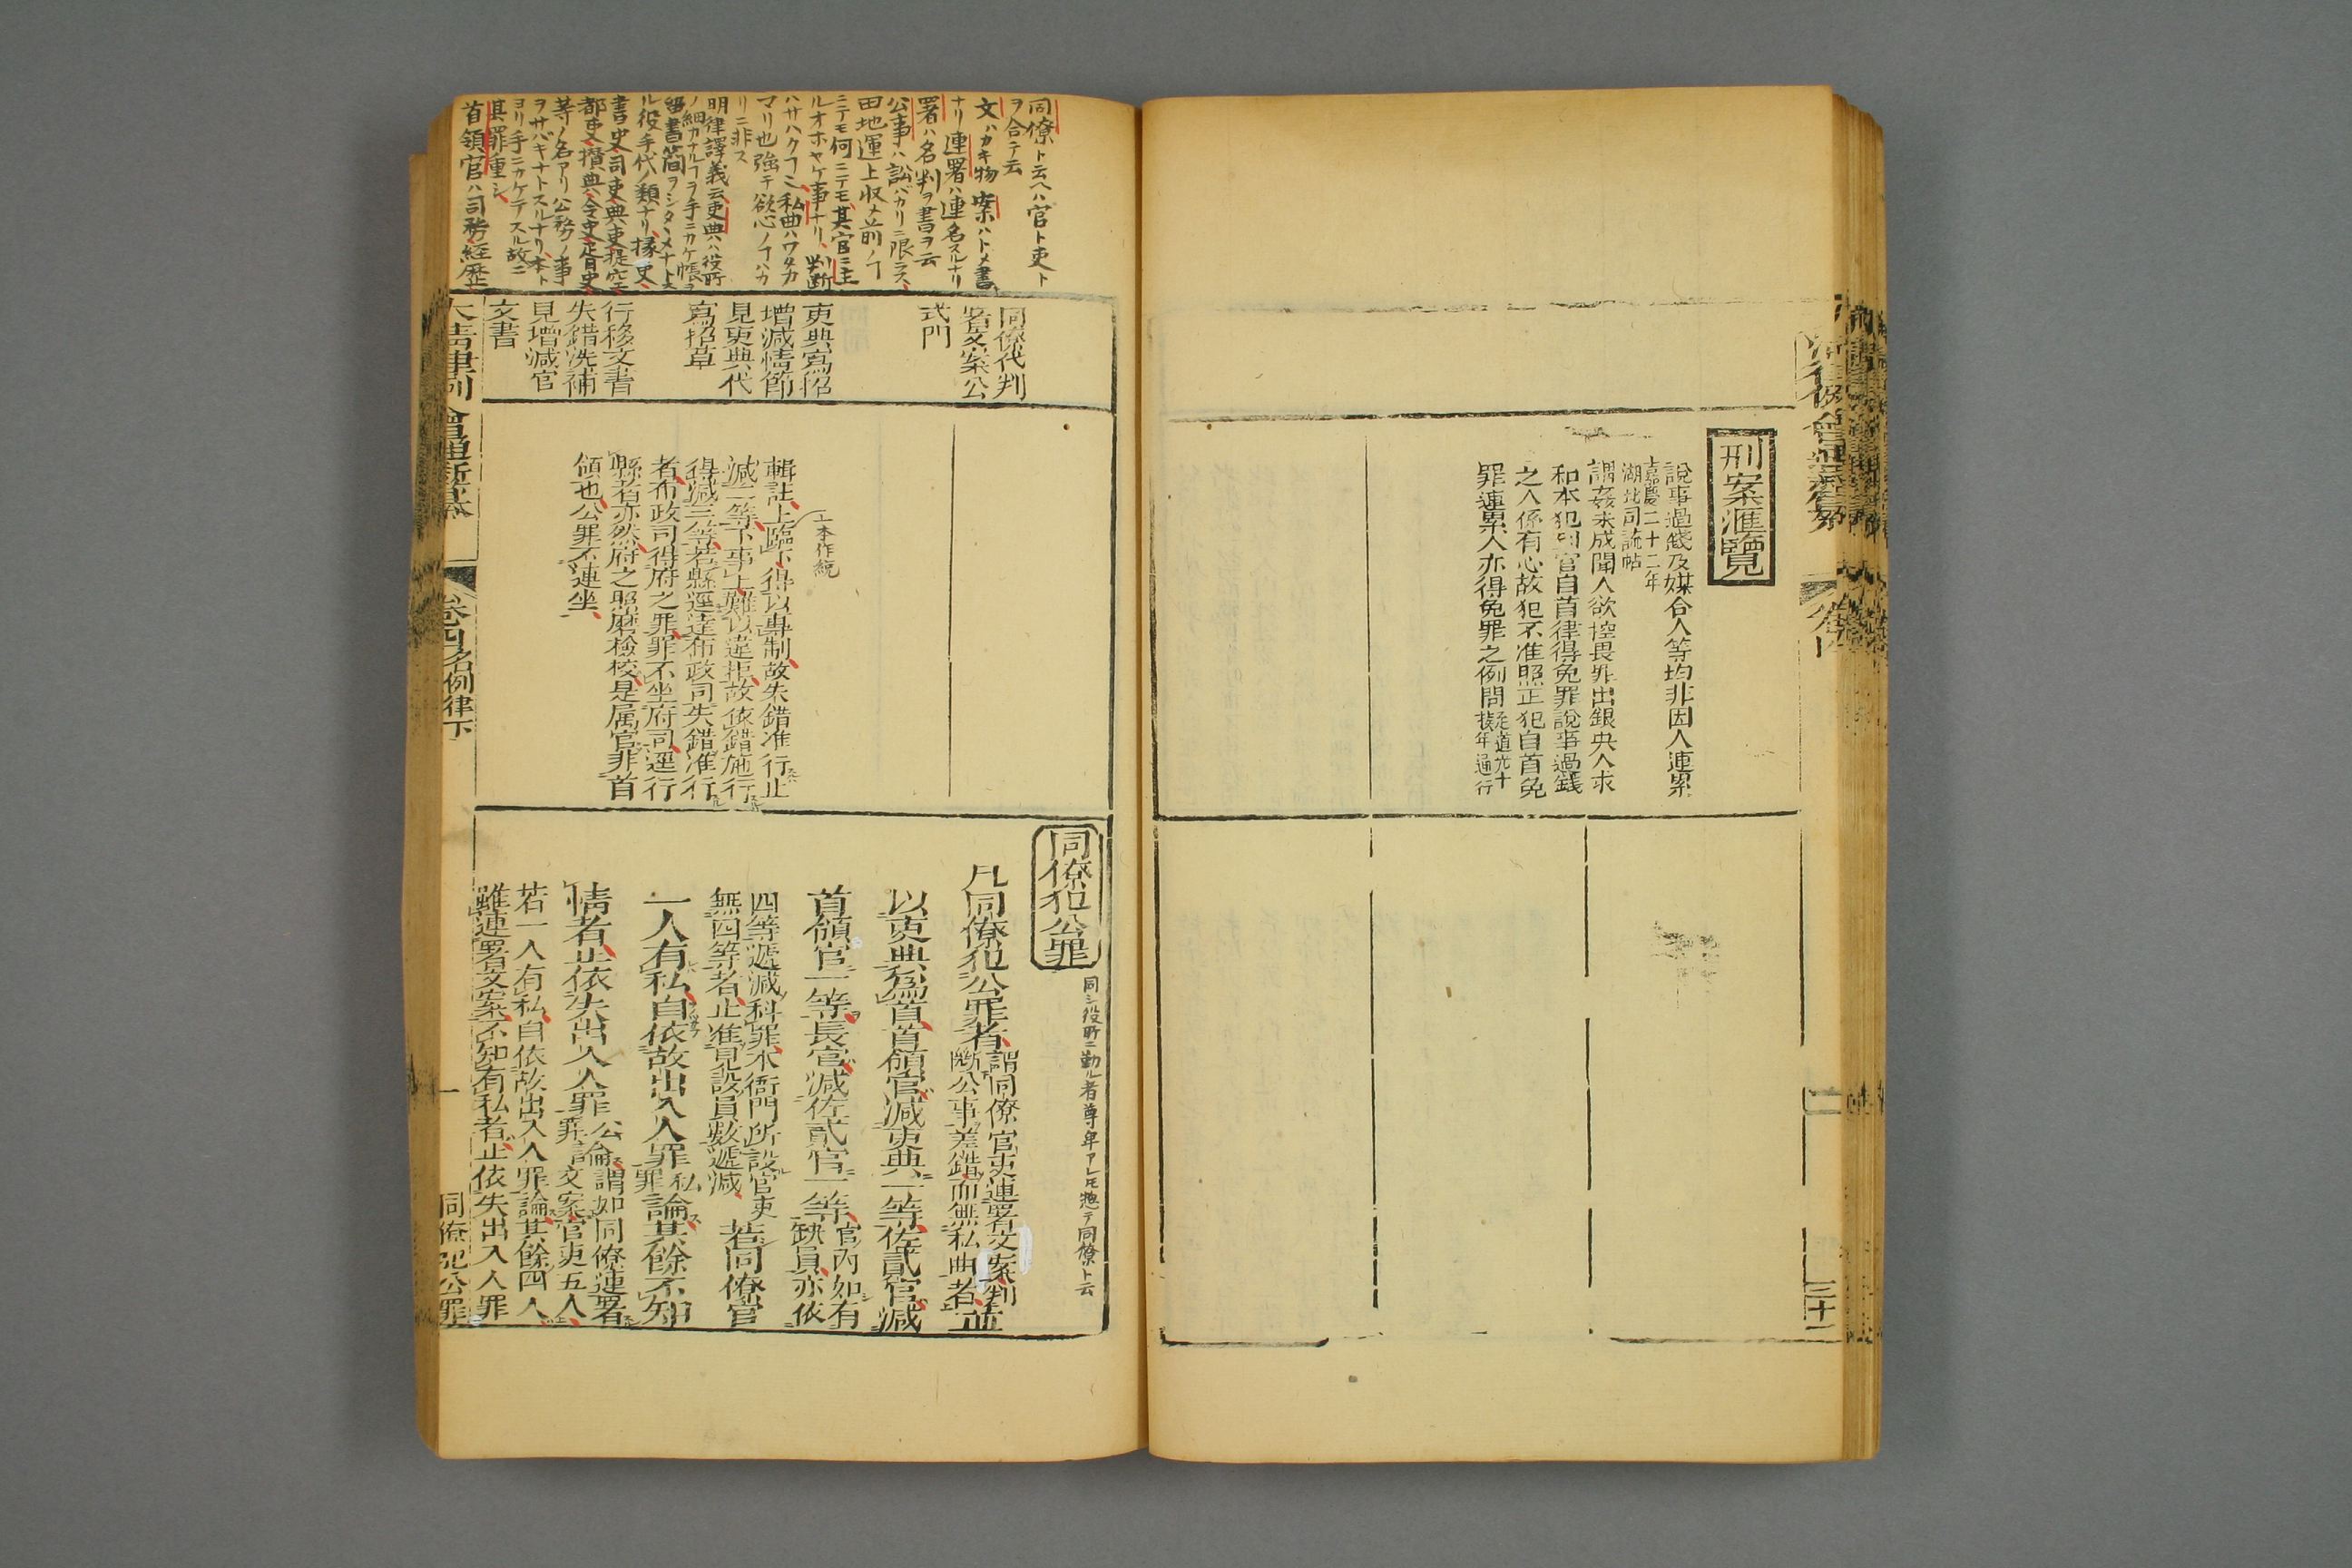 刑案滙覽
說事過錢及媒合人等均非因人連累
嘉慶二十二年
湖北司說帖
謂姦未成聞人欲控畏罪出銀央人求
和本犯到官自首律得免罪說事過錢
之人係有心故犯不准照正犯自首免
罪連累人亦得免罪之例問擬
道光十年通行
三十二
同僚ト云ヘハ官ト吏ト
ヲ合テ云
文ハカキ物案ハトメ書
ナリ連署ハ連名スルナリ
署ハ名判ヲ書ヲ云
公事ハ訟バカリニ限ラス、
田地運上収メ前ノ丁
ニテモ何ニテモ其官ニ主
ルオホヤケ事ナリ、判断
ハサハクフ、私曲ハワタカ
マリ也強チ欲心ノフハカ
リニ非ス
明律譯義云吏典ハ役所
ノ細カナルフヲ手ニカケ帳ラ
書簡ヲシタヽメナトス
ル役手代ノ類ナリ、掾史、
書史司吏典吏提控
都吏攢典令史
等ノ名アリ公務ノ事
ヲサバキナトスルナリ、本ト
ヨリ手ニカケテスル故ニ
其罪重シ、
首領官ハ司務經歷
同僚代判
署文案公
式門
吏典寫招
增減情節
見吏典代
寫招草
行移文書
失錯洗補
見增減官
文書
上本作統
輯註上臨下得以專制故失錯准行止
減二等下事上難以違拒故依錯施行
得減三等若縣逕達布政司失錯准行
者布政司得府之罪罪不坐府司逕行
縣者亦然府之照磨檢校是属官非首
領也公罪不連坐
同僚犯公罪
同シ役所ニ勤ル者尊卑アレモ惣テ同僚ト云
凡同僚犯公罪者謂同僚官吏連署文案判
斷公事差錯而無私曲者並
以吏典爲首首領官減吏典一等佐貳官減
首領官一等長官減佐貳官一等官內如有
缺員亦依
四等遞減科罪本衙門所設官吏
無四等者止准見設員數遞減若同僚官
一人有私自依故出入人罪私罪論其餘不知
情者止依失出入人罪公罪論謂如同僚連署
文案官吏五人
若一人有私自依故出入人罪論其餘四人
雖連署文案不知有私者止依失出入人罪
大清律例會通新纂
卷四名例律下
一
同僚犯公罪